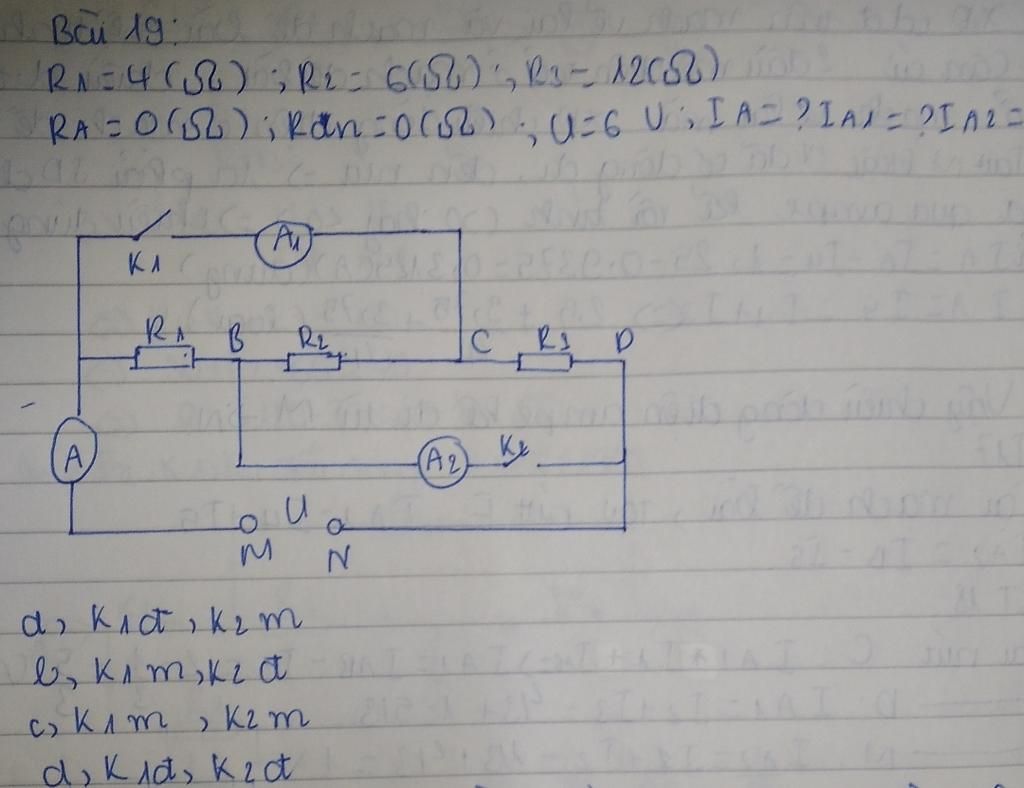 Bài 19:
R1 = 4 (Ω) ; R2 = 6(Ω) ; R3 = 12(Ω)
RA = 0(Ω) ; Rdn = 0(Ω) ; U = 6 V ; IA = ? IA1 = ? IA2 =
K1
A1
R1
B
R2
C
R3
D
A
A2
K2
U
M
N
a, K1đ, K2 m
b, K1 m, K2 đ
c, K1 m , K2 m
d, K1đ, K2 đ